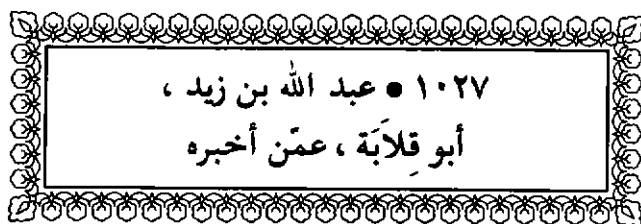 ١٠٢٧ ● عبد الله بن زيد ،
أبو قِلاَبَة ، عمّن أخبره